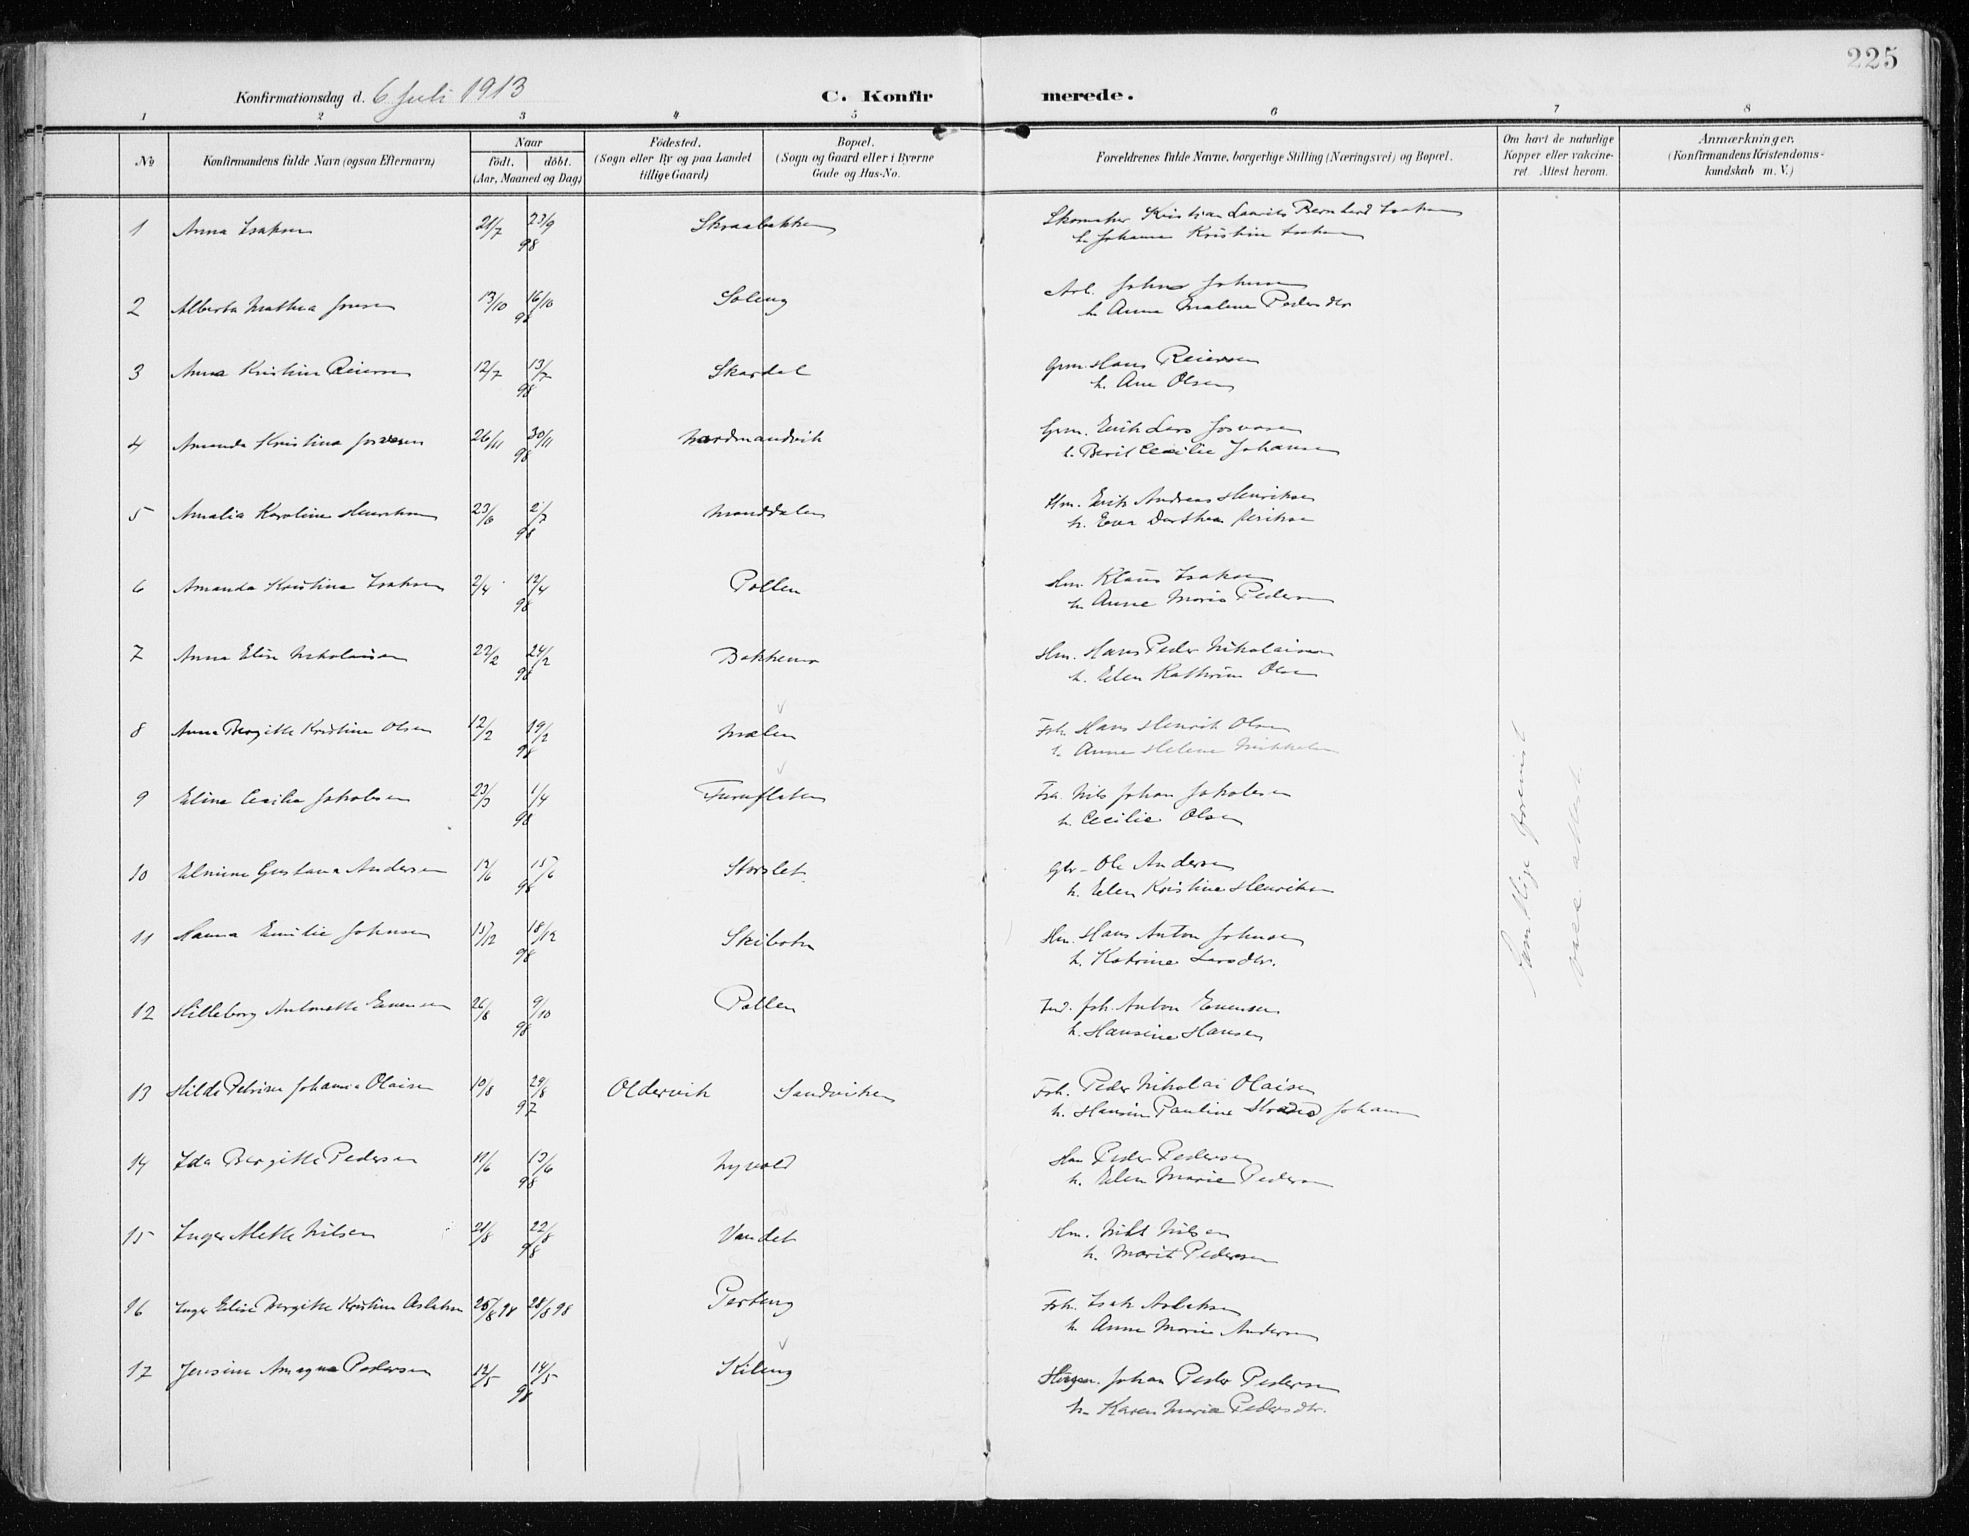 225
Konfirmationsdag d. 6 Juli 1913
C. Konfirmerede.
1 2 3 4 5 6 7 8
No
Konfirmandens fulde Navn (ogsaa Efternavn)
Naar
födt. döbt.
(Aar, Maaned og Dag)
Födested.
(Sogn eller By og paa Landet
tillige Gaard)
Bopæl.
(Sogn og Gaard eller i Byerne
Gade og Hus-No.
Forældrenes fulde Navne, borgerlige Stilling (Næringsvei) og Bopæl.
Om havt de naturlige
Kopper eller vakcine-
ret. Attest herom.
Anmærkninger.
(Konfirmandens Kristendoms-
kundskab m. V.)
1 Anna Isaksen 21/7 23/9 98 Skraabakken Skomaker Kristian Laurits Bernhard Isaksen
h. Johanna Kristine Isaksen
2 Alberta Mathea Jensen 13/10 16/10 98 Soleng Arb. Johns Johnsen
h. Anna Malene Peders dtr
3 Anna Kristine Reiersen 12/7 13/7 98 Skardal Grm. Hans Reiersen
h. Ane Olsen
4 Amanda Kristina Josvasen 26/11 30/11 98 Nordmandvik Grm. Erik Lars Josvasen
h. Berit Cecilie Johansen
5 Amalia Karoline Henriksen 23/6 2/7 98 Manddalen Hm. Erik Andreas Henriksen
h. Eva Dorthea Eriksen
6 Amanda Kristina Isaksen 2/4 12/4 98 Pollen Hm. Klaus Isaksen
h. Anne Maria Pedersen
7 Anna Elise Nikolaisen 22/2 24/2 98 Bakkene Hm. Hans Peder Nikolaisen
h. Elen Kathrine Olsen
8 Anna Bergitte Kristine Olsen 12/2 19/2 98 Mælen Fsk. Hans Henrik Olsen
h. Anne Helene Mikkelsen
9 Eline Cecilie Jakobsen 23/3 1/4 98 Furuflaten Nils Johan Jakobsen
h. Cecilie Olsen
10 Elmine Gustava Andersen 12/6 15/6 98 Storslet Gbr. Ole Andersen
h. Elen Kristine Henriksen
11 Hanna Emilie Johnsen 15/12 18/12 98 Skibotn Hm. Hans Anton Johnsen
h. Katrine Larsdtr.
12 Hilleborg Antonette Evensen 26/8 9/10 98 Pollen Ind. Joh. Anton Evensen
h. Hansine Hansen
13 Hilda Petrine Johanna Olaisen 10/8 29/8 97 Oldervik Sandviken Fsk. Peder Nikolai Olaisen
h. Hansine Pauline Johans
14 Ida Bergitte Pedersen 11/6 13/6 98 Nyvold Hm Peder Pedersen
h. Elen Marie Pedersen
15 Inger Mette Nilsen 21/8 22/8 98 Vandet Hm. Nils Nilsen
h. Marit Pedersen
16 Inger Elise Bergitte Kristine Aslaksen 25/8 98 28/8 98 Perteng Fsk. Isak Aslaksen
h. Anne Marie Andersen
17 Jensine Amagna Pedersen 12/5 14/5 98 Kileng Johan Peder Pedersen
h. Karen Maria Pedersdtr.
Samtlige forevist
vacc. attest.